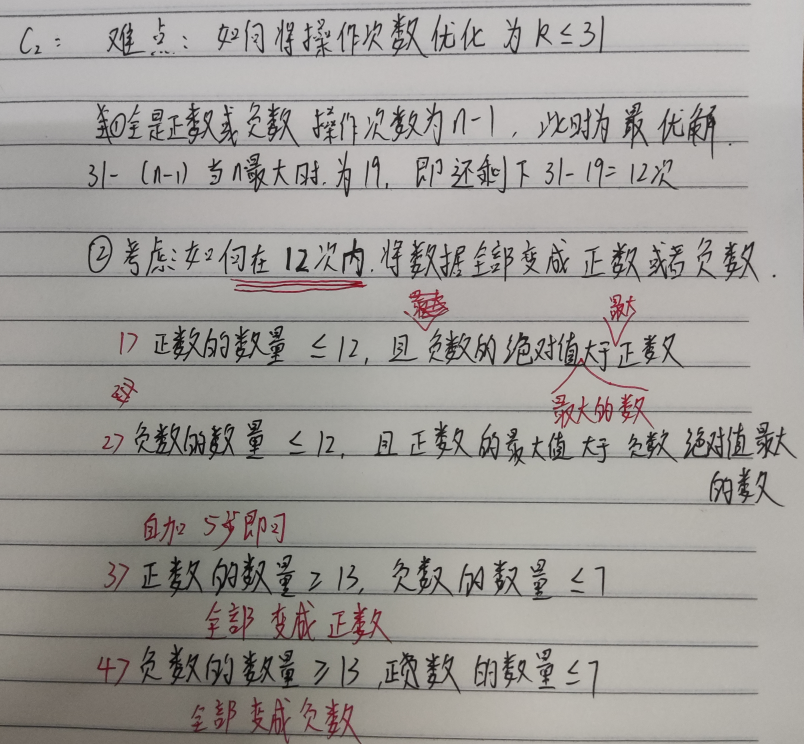 C₂: 难点: 如何将操作次数优化为 k≤31
①全是正数或负数 操作次数为n-1, 此时为最优解.
31-(n-1) 当n最大时.为19, 即还剩下 31-19=12次
②考虑:如何在12次内.将数据全部变成 正数或者负数.
最大
1> 正数的数量 ≤12, 且 负数的绝对值大于正数
最大的数
2> 负数的数量 ≤12, 且 正数的最大值大于 负数绝对值最大
的数
自加 5步即可
3> 正数的数量≥13, 负数的数量≤7
全部变成正数
4> 负数的数量≥13, 正数的数量≤7
全部变成负数